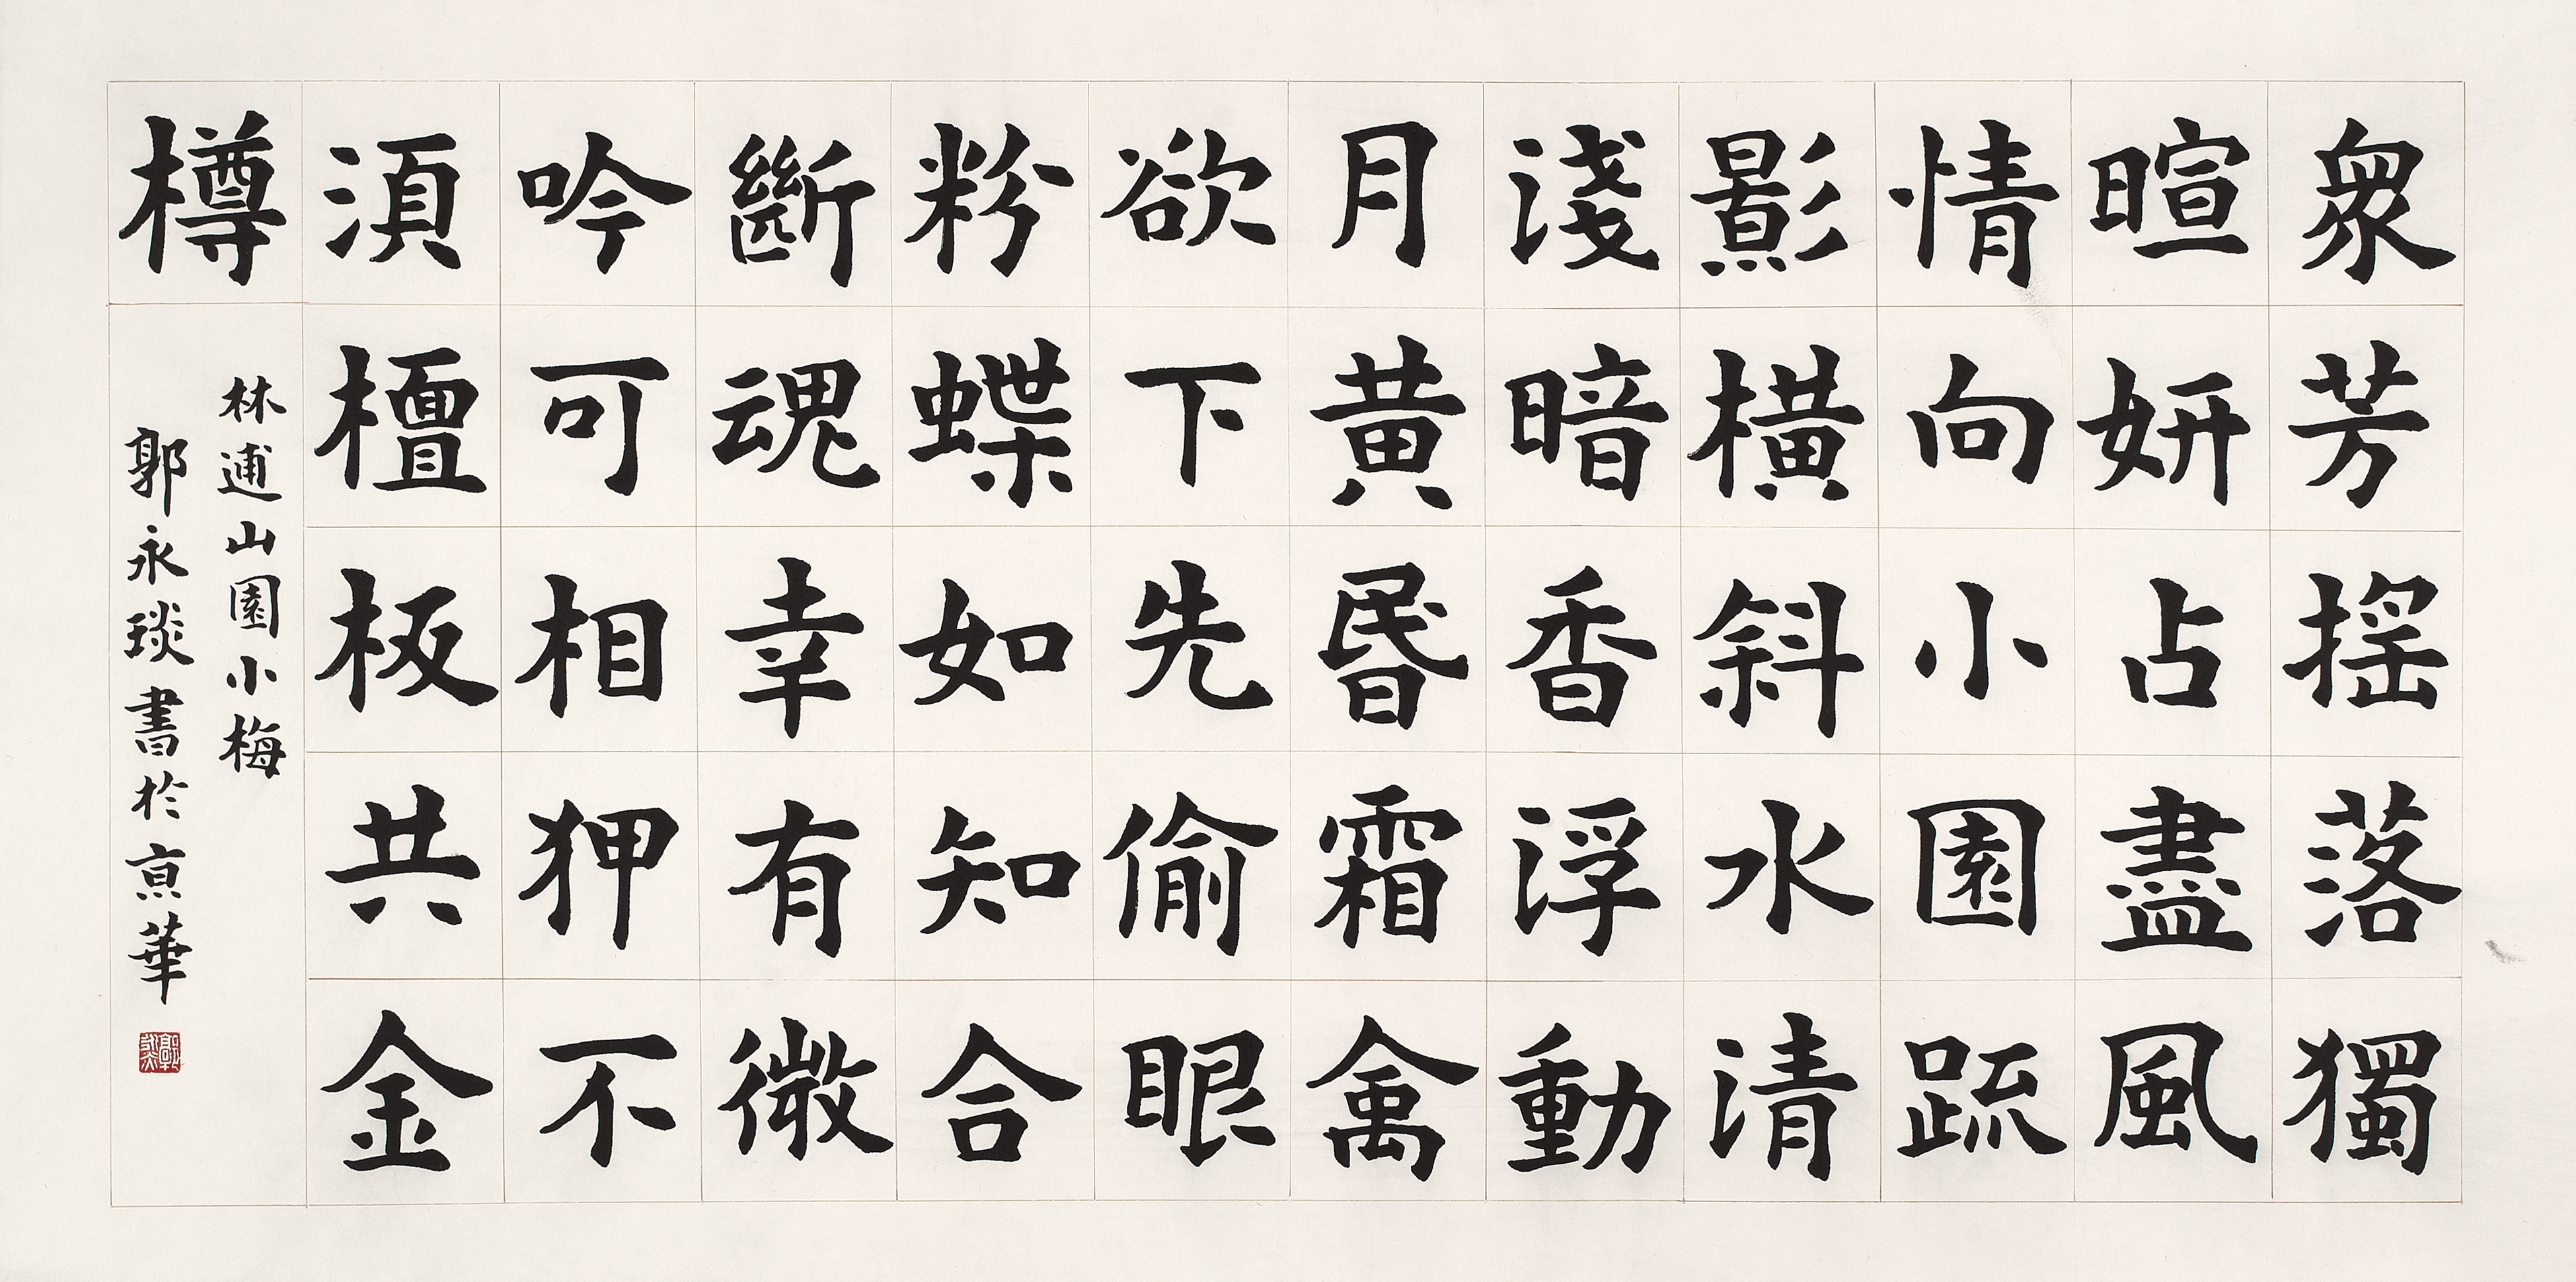 衆芳揺落獨
暄妍占盡風
情向小園疏
影橫斜水清
淺暗香浮動
月黃昬霜禽
欲下先偷眼
粉蝶如知合
斷魂幸有微
吟可相狎不
須檀板共金
樽
林逋山園小梅
郭永琰書於京華